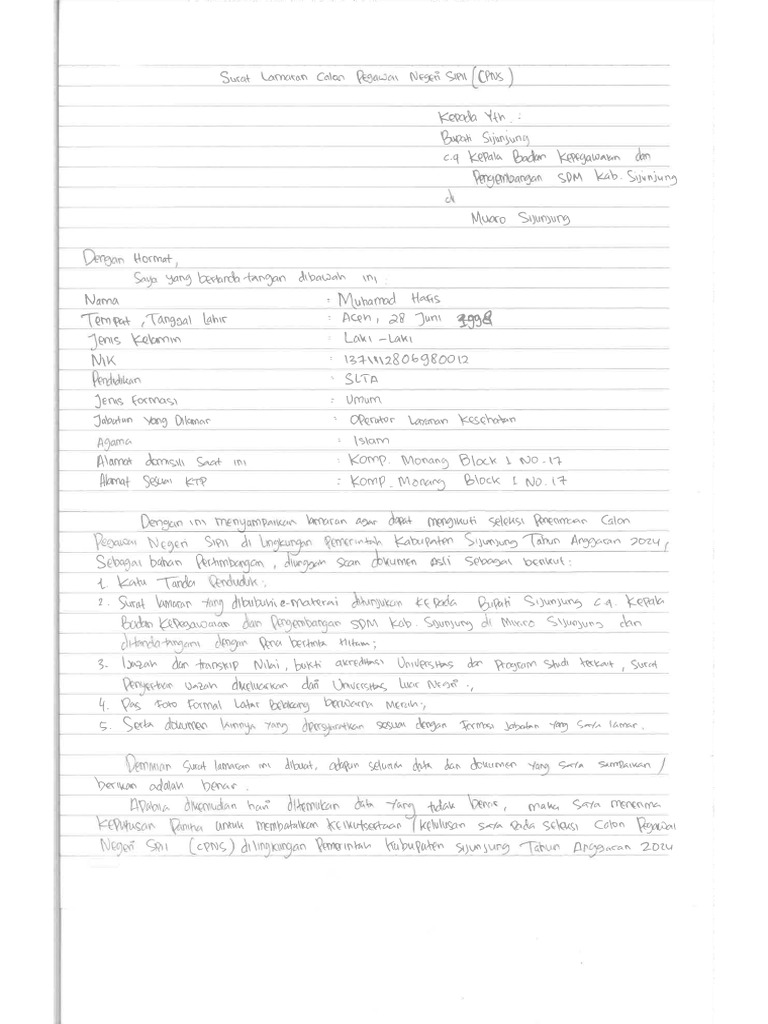 Surat Lamaran Calon Pegawai Negeri Sipil (CPNS)
Kepada Yth. :
Bupati Sijunjung
c.q Kepala Badan Kepegawaian dan
Pengembangan SDM Kab. Sijunjung
di
Muaro Sijunjung
Dengan Hormat,
Saya yang bertanda-tangan dibawah ini :
Nama : Muhamad Hafis
Tempat, Tanggal Lahir : Aceh, 28 Juni 1998
Jenis Kelamin : Laki-Laki
NIK : 1371112806980012
Pendidikan : SLTA
Jenis Formasi : Umum
Jabatan Yang Dilamar : Operator Layanan Kesehatan
Agama : Islam
Alamat domisili Saat ini : Komp. Monang Block 1 NO.17
Alamat Sesuai KTP : Komp. Monang Block 1 NO.17
Dengan ini menyampaikan lamaran agar dapat mengikuti seleksi Penerimaan Calon
Pegawai Negeri Sipil di Lingkungan Pemerintah Kabupaten Sijunjung Tahun Anggaran 2024,
Sebagai bahan Pertimbangan, diunggah scan dokumen Asli Sebagai berikut :
1. Kartu Tanda Penduduk;
2. Surat lamaran yang dibubuhi e-materai ditunjukan kepada Bupati Sijunjung c.q. Kepala
Badan Kepegawaian dan Pengembangan SDM Kab. Sijunjung di Muaro Sijunjung dan
ditanda-tangani dengan Pena bertinta Hitam;
3. Ijazah dan transkip Nilai, bukti akreditasi Universitas dan Program Studi terkait, Surat
Penyertian ijazah dikeluarkan dari Universitas Luar Negri.;
4. Pas Foto Formal Latar Belakang berwarna Merah;
5. Serta dokumen lainnya yang dipersyaratkan sesuai dengan Formasi Jabatan yang saya lamar.
Demikian Surat lamaran ini dibuat, adapun seluruh data dan dokumen yang saya sampaikan /
berikan adalah benar.
Apabila dikemudian hari ditemukan data yang tidak benar, maka saya menerima
keputusan Panitia untuk membatalkan keikutsertaan / kelulusan saya pada seleksi Calon Pegawai
Negeri Sipil (CPNS) di lingkungan Pemerintah Kabupaten Sijunjung Tahun Anggaran 2024